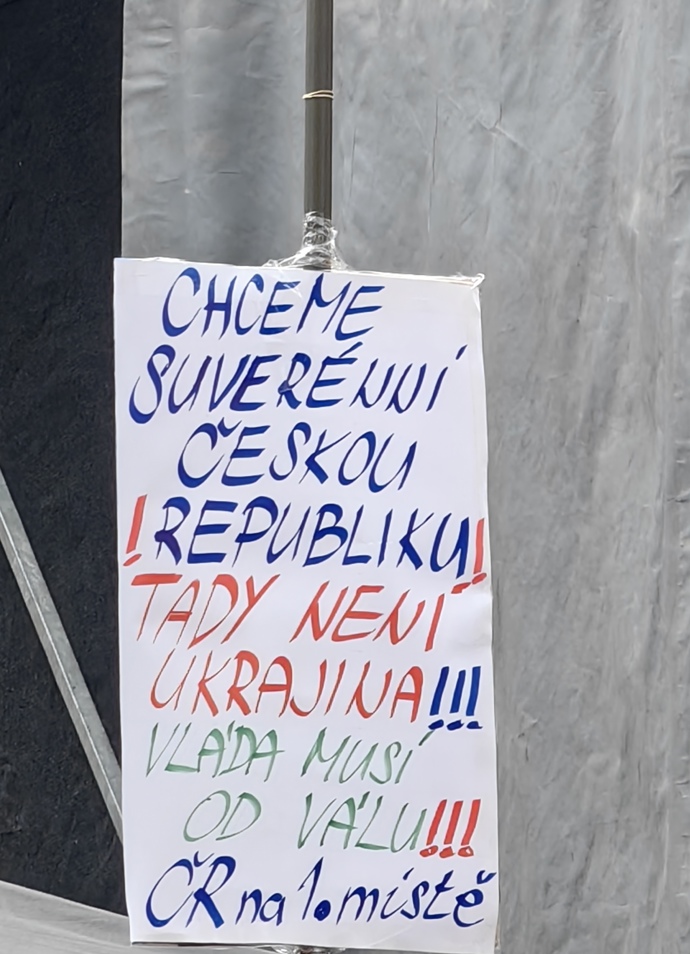 CHCEME
SUVERÉNNÍ
ČESKOU
!REPUBLIKU!
TADY NENÍ
UKRAJINA!!!
VLÁDA MUSÍ
OD VÁLU!!!
ČR na 1. místě